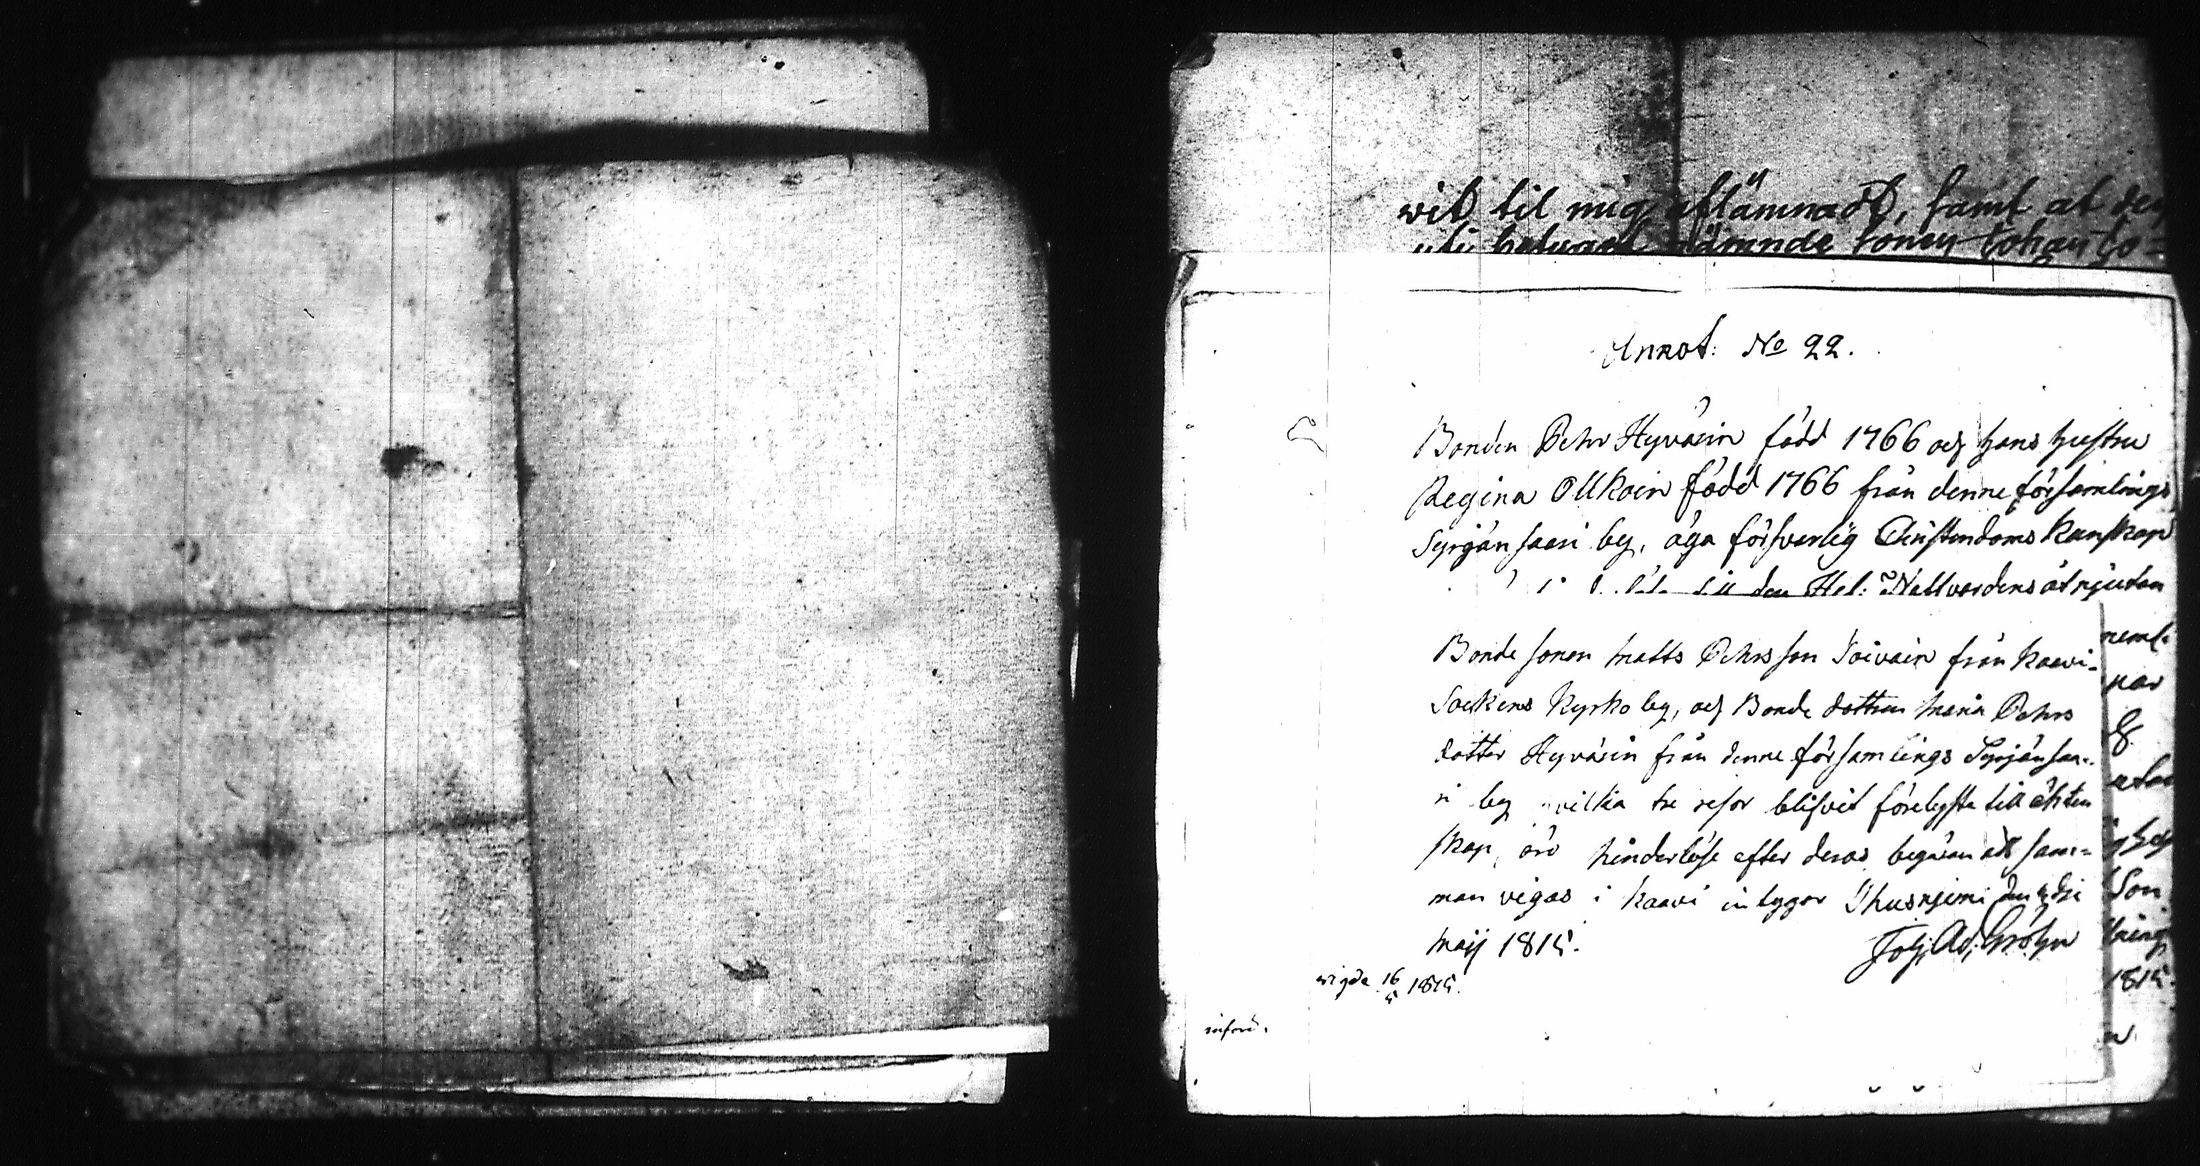 wit til mig aflämnadt, samt at den
nämnde sonen Johan
Annot: No 22.
Bonden Pehr Hyvärin född 1766 och hans hustru
Regina Ollkoin född 1766 från denne församlings
Syrjänsaari by, äga försvarlig Christendoms kunskap
den Hel: Nattvardens åtnjutan
Bonde sonen Matts Pehrsson Toivain från Kaavi-
Sockens Kyrko by, och Bonde dottren Maria Pehrs
dotter Hyvärin från denne församlings Syrjänsaa-
ri by hvilka tre resor blifvit förelyste till ächten
skap, äro hinderlöse efter deras begäran att sam=
man vigas i Kaavi intygar Thusniemi den
Maij 1815.
Joh, Ad, Gröhn
wigde 16/5 1815.
införd.
nemli
par
son
1815.